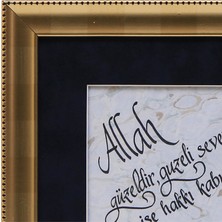 Allah
güzeldir, güzeli seve
ise hakkı kabu